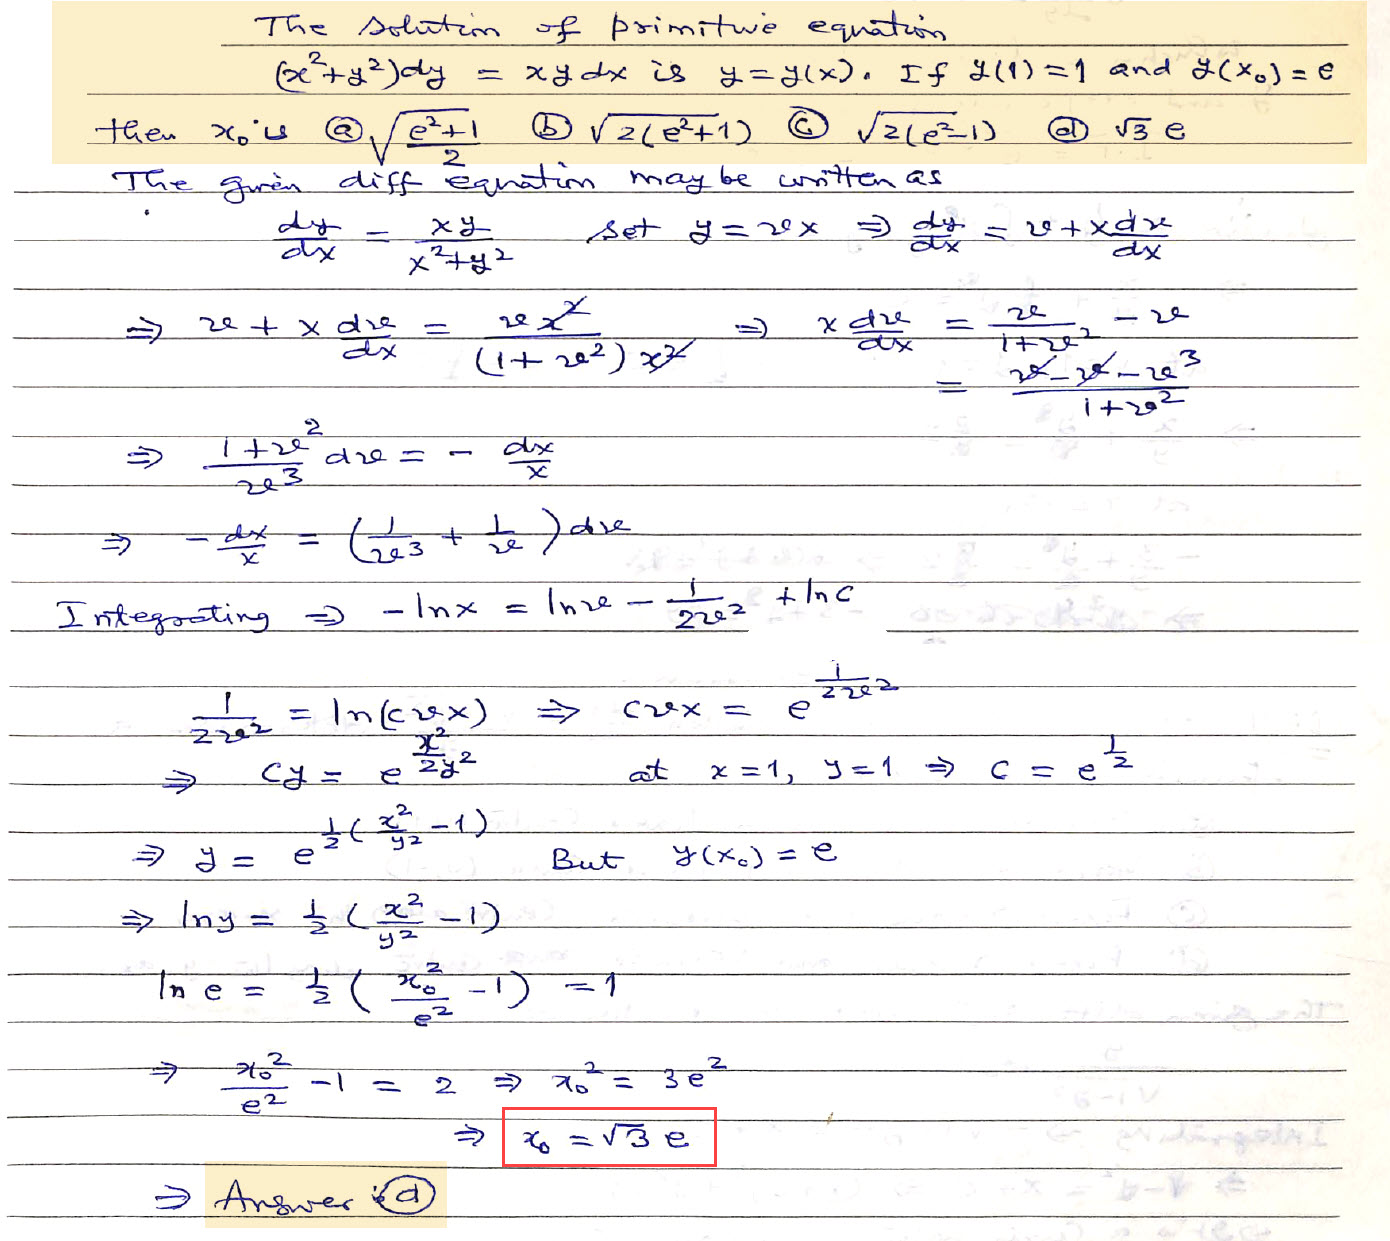 The solution of primitive equation
(x²+y²)dy = xydx is y=y(x). If y(1)=1 and y(x₀)=e
then x₀ is ⓐ √((e²+1)/2) ⓑ √(2(e²+1)) ⓒ √(2(e²-1)) ⓓ √3 e
The given diff equation may be written as
dy/dx = xy/(x²+y²) Set y=vx ⇒ dy/dx = v+x dv/dx
⇒ v + x dv/dx = vx²/((1+v²)x²) ⇒ x dv/dx = v/(1+v²) - v
= (v-v-v³)/(1+v²)
⇒ (1+v²)/v³ dv = - dx/x
⇒ - dx/x = (1/v³ + 1/v) dv
Integrating ⇒ -ln x = ln v - 1/(2v²) + ln c
1/(2v²) = ln(cvx) ⇒ cvx = e^(1/(2v²))
⇒ cy = e^(x²/(2y²)) at x=1, y=1 ⇒ c = e^(1/2)
⇒ y = e^(½(x²/y² -1)) But y(x₀) = e
⇒ ln y = ½ (x²/y² -1)
ln e = ½ (x₀²/e² -1) = 1
⇒ x₀²/e² -1 = 2 ⇒ x₀² = 3e²
⇒ x₀ = √3 e
⇒ Answer is ⓓ